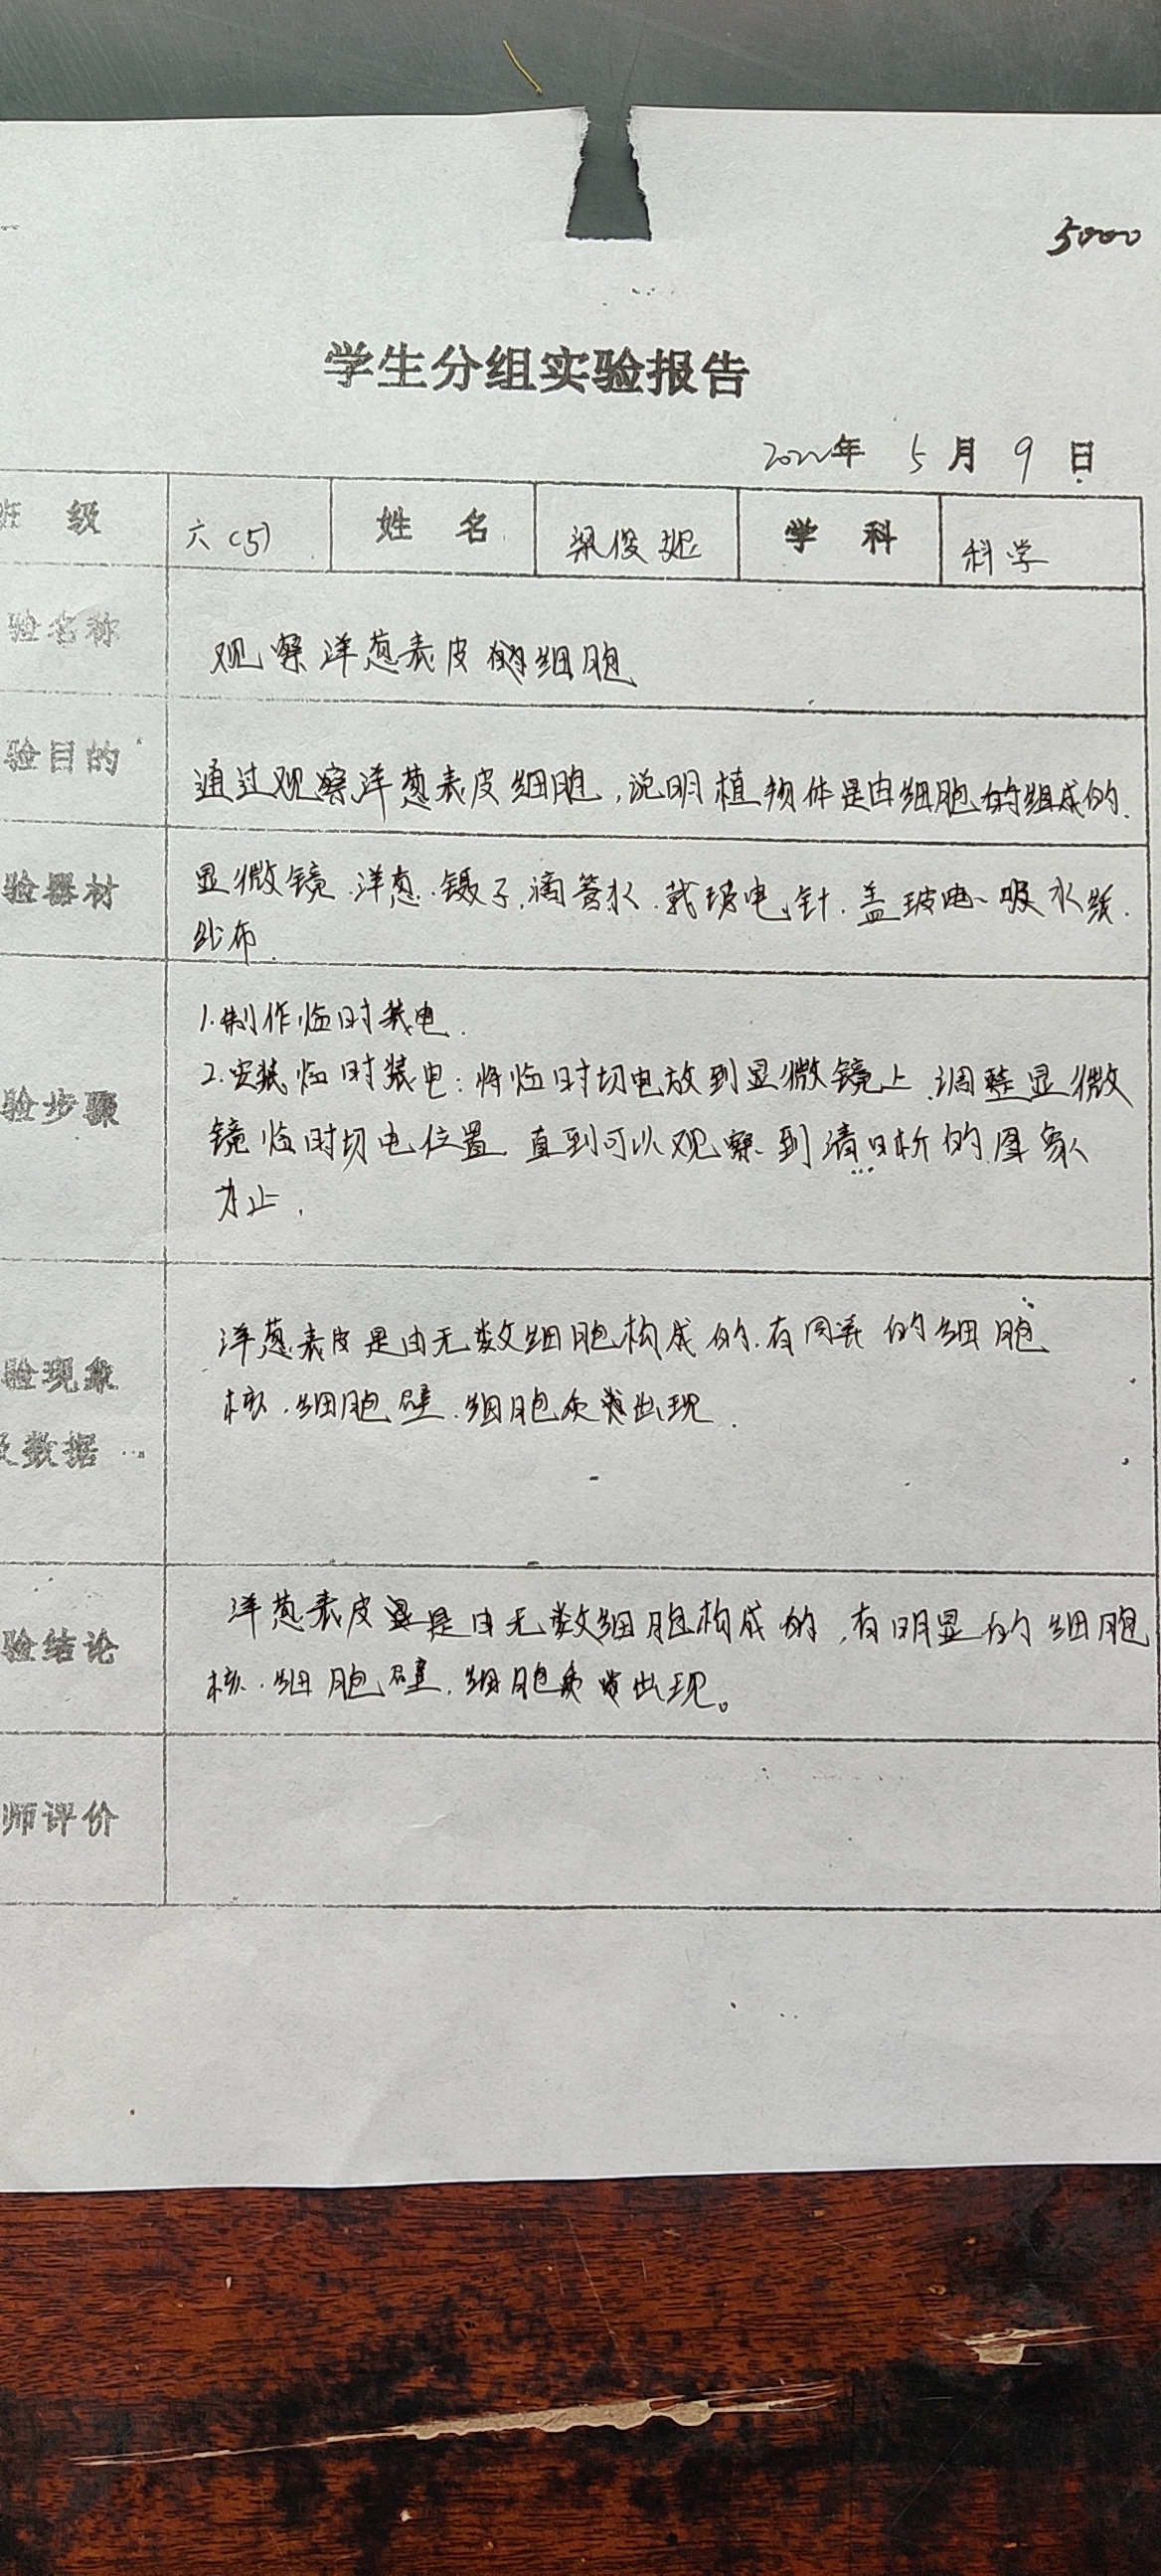 5000
学生分组实验报告
2022年 5月 9日
班 级 六(5) 姓 名 梁俊妮 学 科 科学
验名称 观察洋葱表皮的细胞
验目的 通过观察洋葱表皮细胞,说明植物体是由细胞的组成的.
验器材 显微镜.洋葱.镊子.滴管水.载玻电.针.盖玻电、吸水纸.
纱布.
1.制作临时装电.
2.安装临时装电:将临时切电放到显微镜上.调整显微
验步骤
镜临时切电位置.直到可以观察到清晰的图象
为止.
洋葱表皮是由无数细胞构成的.有同关的细胞
验现象
核.细胞壁.细胞质出现.
及数据
洋葱表皮是由无数细胞构成的,有明显的细胞
验结论
核.细胞壁.细胞质出现。
师评价